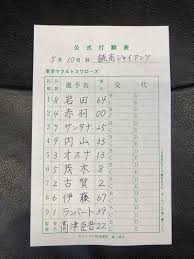 公式打順表
5月10日 対 読売ジャイアンツ
東京ヤクルトスワローズ
選手名 交代
1 8 岩田 64
2 4 赤羽 00
3 7 サンタナ 25
4 9 内山 33
5 3 オスナ 13
6 5 茂木 8
7 2 古賀 2
8 6 伊藤 67
9 1 ランバート 39
高津臣吾 22